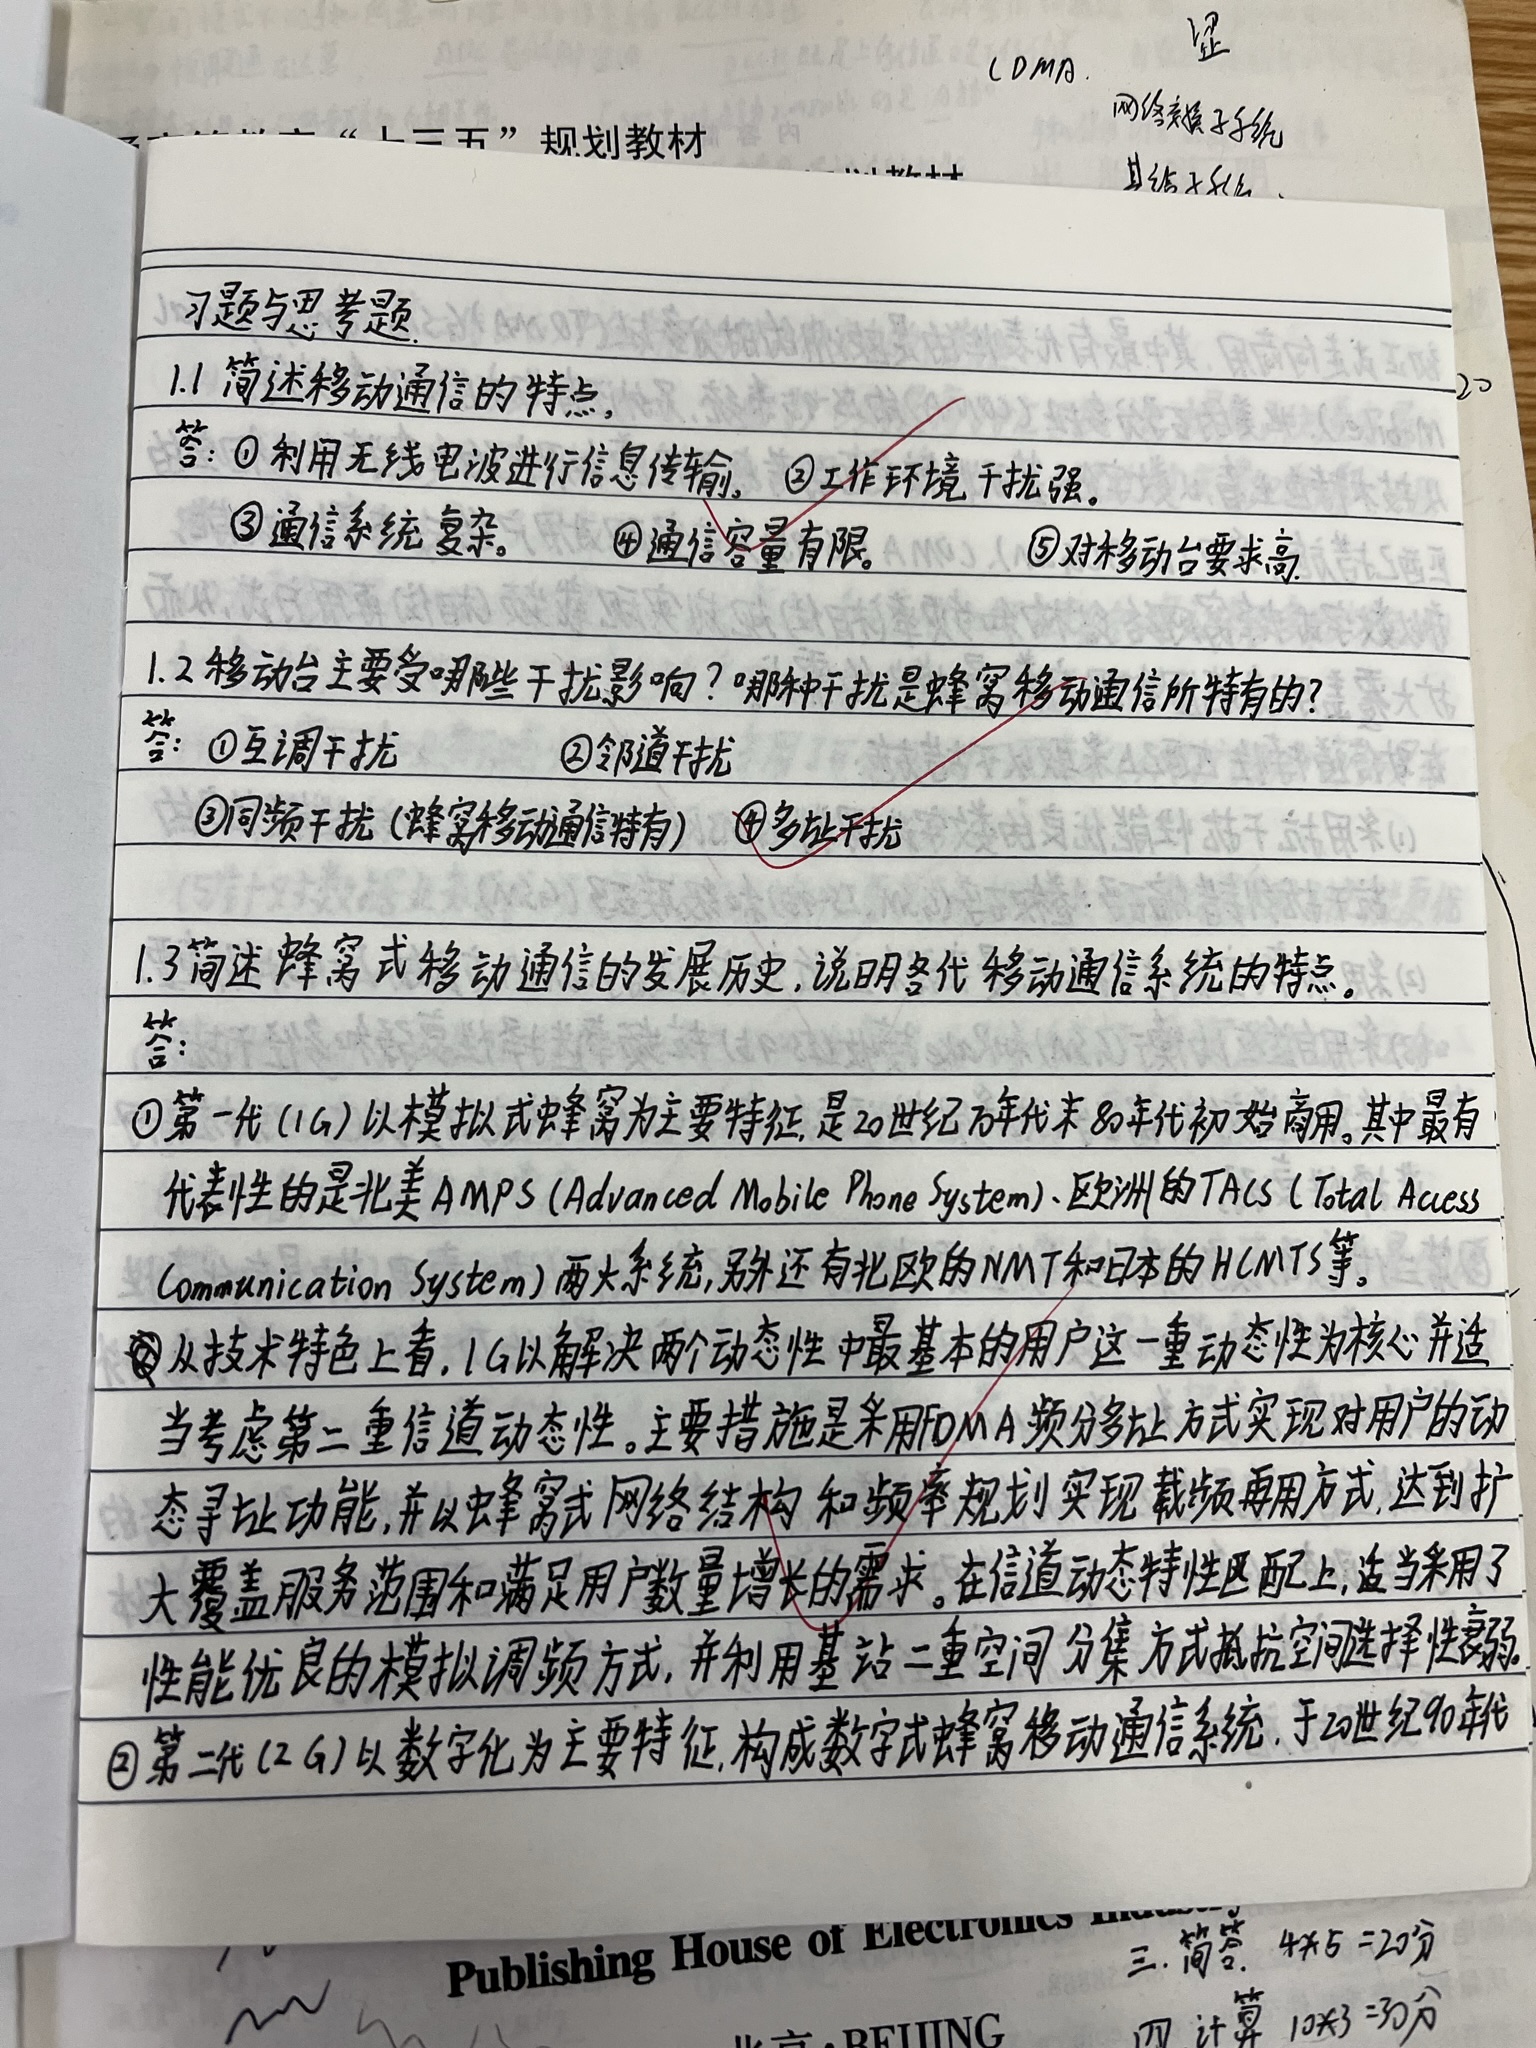 CDMA.
网络交换子系统
"十三五"规划教材
20
习题与思考题.
1.1 简述移动通信的特点,
答: ①利用无线电波进行信息传输。 ②工作环境干扰强。
③通信系统复杂。 ④通信容量有限。 ⑤对移动台要求高.
1.2 移动台主要受哪些干扰影响?哪种干扰是蜂窝移动通信所特有的?
答: ①互调干扰 ②邻道干扰
③同频干扰(蜂窝移动通信特有) ④多址干扰
1.3 简述蜂窝式移动通信的发展历史,说明各代移动通信系统的特点。
答:
①第一代(1G)以模拟式蜂窝为主要特征,是20世纪70年代末80年代初始商用。其中最有
代表性的是北美AMPS(Advanced Mobile Phone System)、欧洲的TACS(Total Access
Communication System)两大系统,另外还有北欧的NMT和日本的HCMTS等。
从技术特色上看,1G以解决两个动态性中最基本的用户这一重动态性为核心并适
当考虑第二重信道动态性。主要措施是采用FDMA频分多址方式实现对用户的动
态寻址功能,并以蜂窝式网络结构和频率规划实现载频再用方式,达到扩
大覆盖服务范围和满足用户数量增长的需求。在信道动态特性匹配上,适当采用了
性能优良的模拟调频方式,并利用基站二重空间分集方式抵抗空间选择性衰弱。
②第二代(2G)以数字化为主要特征,构成数字式蜂窝移动通信系统,于20世纪90年代
Publishing House of Electronics Industry
三.简答. 4×5=20分
北京·BEIJING
四 计算 10×3=30分